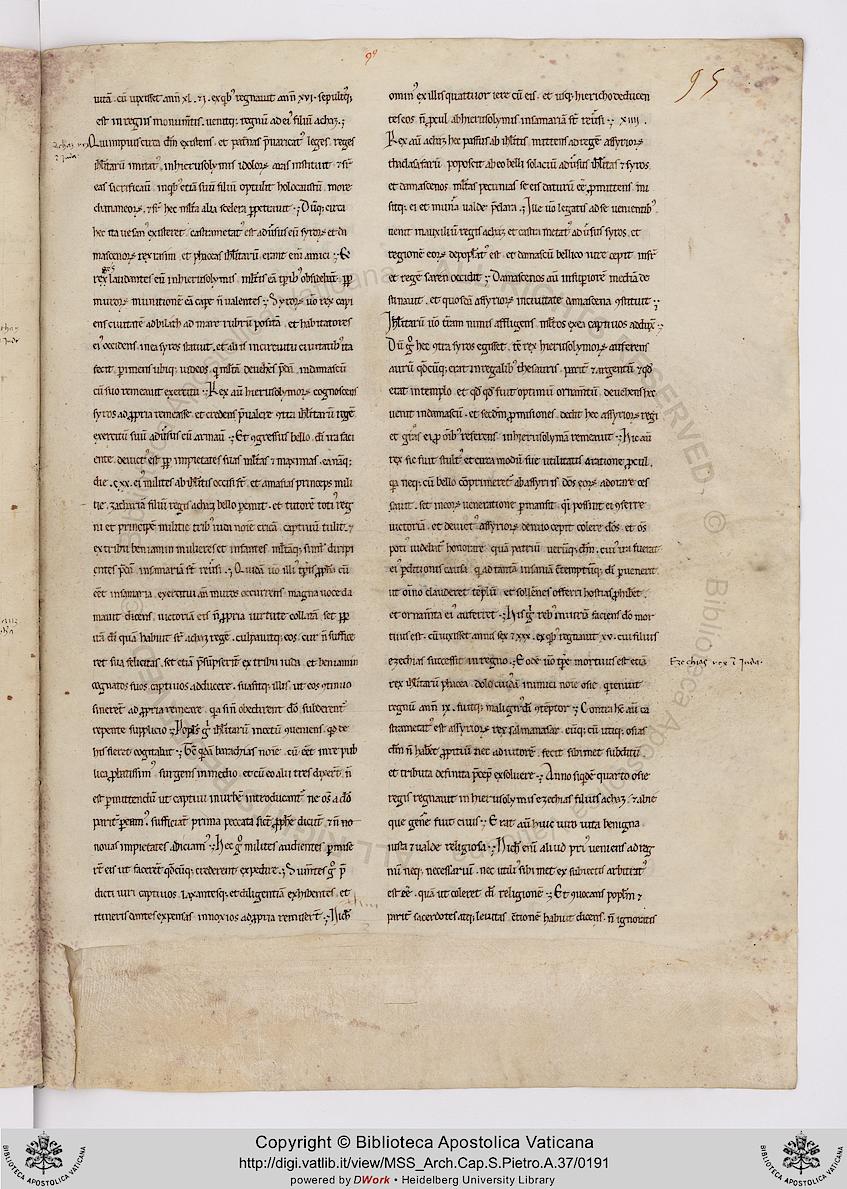 99
95
uitā. cū uixisset ann̄ xl. ⁊ i. ex q̇b; regnauit ann̄ xvi. sepultq;
est in regiis monum̄tis. uenitq; regnū ad ei filiū achaz.
Qui impius circa dm̄ existens. et pat̄nas p̄uaricat leges. reges
isrlitarū imitat. in hierusolymis idolorꝝ aras instituit
eas sacrificauī. in q̇b; etiā suū filiū optulit holocaustū. more
chananeorꝝ. hec mlta alia scelera ꝑpetrauit. Dūq; circa
hec ita uesan existeret. castrametat est adūsus eū syrorꝝ et da
mascenorꝝ rex rasim. et phacees isrlitarū. erant enī amici. Et
rex laudantes eū in hierusolymis. mltis eā tp̄rib; obsidebāt. ꝓp
murorꝝ munitionē eā cape n̄ ualentes. Syrorꝝ uō rex capi
ens ciuitatē ad bilath ad mare rubrū posita. et habitatores
ei occidens. in ea syros statuit. et aliis in circuitu ciuitatib; ita
fecit. ꝑimens ubiq; iudeos. q mltā deuehēs p̄dā. in damascū
cū suo remeauit exercitu. Rex aū hierusolymorꝝ cognoscens
syros ad ꝓpria remeasse. et credens p̄ualere ꝯtra isrlitarū regē.
exercitū suū adūsus eū armauī. Et ꝯgressus bello. dī ira faci
ente. deuict est ꝓp impietates suas mltas ⁊ maximas. ea nāq;
die. c.xx. ei milites ab isrlitis occisi st. et amasias princeps mili
tie. zachariā filiū regis achaz bello ꝑemit. et tutorē toti reg
ni et principē militie trib iuda noīe ericā. captiuū tulit. ⁊
ex tribu beniamin mulieres et infantes. mltāq; simł diripi
entes p̄dā. in samariā st reūsi. Quidā uō illi tp̄ris ꝓpha cū
eēt in samaria. exercitui an̄ muros occurrens. magna uoce cla
mauit dicens. uictoriā eis n̄ ꝓpria uirtute collatā. set ꝓp
irā dī quā habuit st̄. achaz regē. culpauitq; eos. cur n̄ suffice
ret sua felicitas. set etiā p̄supserīt ex tribu iuda. et beniamin
cognatos suos captiuos adducere. suasitq; illis. ut eos ꝯtinuo
sinerēt ad ꝓpria remeare. qa si n̄ obedirent dō. subderent
repente supplicio. Popls g isrlitarū in cetū ꝯueniens. qd de
his fieret cogitabat. Tē qdā barachias noīe. cū eēt in re pub
lica ꝓbatissim. surgens in medio. et cū eo alii tres dixert. n̄
est ꝑmittendū ut captiui in urbē introducant. ne oms a dō
parit ꝑeam. sufficiat prima peccata sicut ꝓphe dicūt. ⁊ n̄ no
nouas impietates adiciam. Hec g milites audientes. ꝑmise
rt eis ut facerēt qdcūq; crederent expedire. Sumētes g p̄
dicti uiri captiuos. laxantesq;. et diligentiā exhibentes. et
itineris dantes expensas. innoxios ad ꝓpria remisert. Nichł
omin ex illis quattuor iere cū eis. et usq; hiericho deducen
tes eos. n̄ pcul ab hierusolymis in samariā st reūsi. xiiii.
Rex aū achaz hec passus ab isrlitis. mittens ad regē assyriorꝝ
thaclasfatarū. poposcit ab eo belli solaciū adūsus isrlitas ⁊ syros.
et damascenos. mltas pecunias se eis daturū eē ꝓmittens. mi
sitq; ei et munīa ualde p̄clara. Ille uō legatis ad se uenientib.
uenit in auxiliū regis achaz. et castra metat adūsus syros. et
regionē eorꝝ depoplat est. et damascū bellico iure cepit. insr
et regē rasen occidit. Damascenos aū in suꝑiorē mediā de
stinauit. et quosdā assyriorꝝ in ciuitate damascena ꝯstituit.
Isrlitarū uō trām nimis affligens. mltos ex ea captiuos adduxit.
Dū g hec ꝯtra syros egisset. tē rex hierusolymorꝝ auferens
aurū qdcūq; erat in regalib; thesauris. parit ⁊ argentū ⁊ qd
erat in templo. et qd qd fuit optimū ornamtū. deuehens hec
uenit in damascū. et secdm ꝓmissiones. dedit hec assyriorꝝ regi
et gras ei ꝓ oib; referens. in hierusolymā remeauit. Hic aū
rex sic fuit stult. et extra modū sue utilitatis a ratione pcul.
qa neq; cū bello cōprimeret ab assyris. dōs eorꝝ adorare ces
sauit. set in eorꝝ ueneratione ꝑmansit. qi possint ei ꝯferre
uictoriā. et deuict assyriorꝝ denuo cepit colere dōs. et os
poti uidebat honorare. quā patriū uerūq; dm̄. cui ira fuerat
ei ꝑditionis causa. q ad tantā insaniā cōtemptūq; dī ꝑuenerit.
ut oīno clauderet tēplū. et sollēnes offerri hostias ꝓhibet.
et ornamta ei auferret. His g reb; in iuriā faciens dō mor
tuus est. cū uixisset annis sex ⁊ xxx. ex qb; regnauit xv. cui filius
ezechias successit in regno. Eodē uō tp̄e mortuus est etiā
rex isrlitarū phacea. dolo cuidā inimici noīe osie. q tenuit
regnū ann̄ ix. fuitq; malign dī ꝯteptor. Contra hē aū ca
strametat est assyriorꝝ rex salmanasar. euq; cū uicq; osias
dm̄ n̄ habet ꝓpitiū nec adiutorē. fecit sibimet subditū
et tributa definita p̄cep exsoluere. Anno siqdē quarto osie
regis regnauit in hierusolymis ezechias filius achaz. ⁊ abie
que gene fuit ciuis. Erat aū huic uiro uita benigna
iusta ⁊ ualde religiosa. Nichł enī aliud pri ueniens ad reg
nū. neq; necessariū. nec utili sibi met ex subiectis arbitrat
est ēē. quā ut coleret dī religionē. Et ꝯuocans poplm ⁊
parit sacerdotes atq; leuitas. ctionē habuit dicens. n̄ ignoratis
Ezechias rex ī Juda.
Copyright © Biblioteca Apostolica Vaticana
http://digi.vatlib.it/view/MSS_Arch.Cap.S.Pietro.A.37/0191
powered by DWork • Heidelberg University Library
BIBLIOTECA APOSTOLICA VATICANA
BIBLIOTECA APOSTOLICA VATICANA